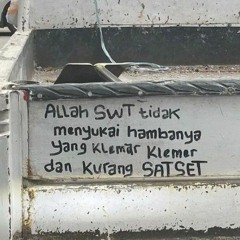 Allah SWT tidak
menyukai hambanya
yang Klemar Klemer
dan Kurang SATSET